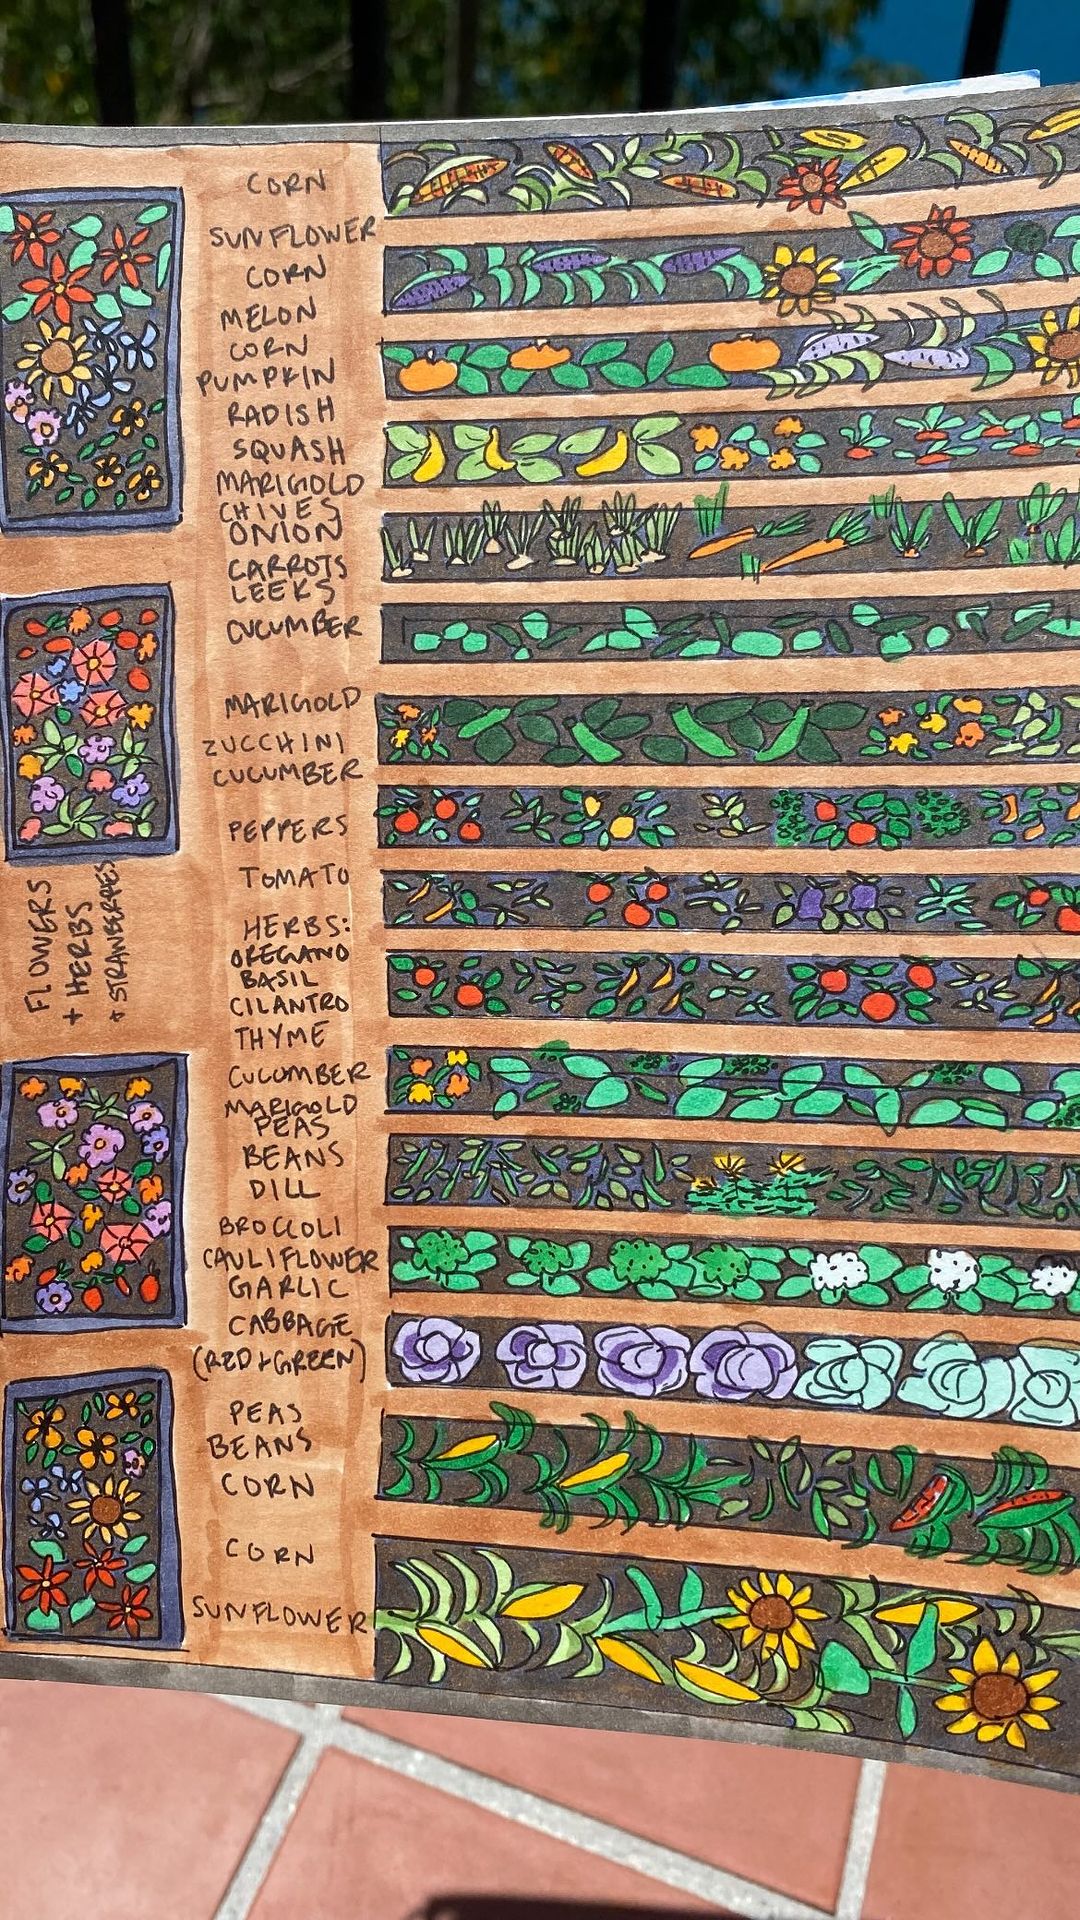 CORN
SUNFLOWER
CORN
MELON
CORN
PUMPKIN
RADISH
SQUASH
MARIGOLD
CHIVES
ONION
CARROTS
LEEKS
CUCUMBER
MARIGOLD
ZUCCHINI
CUCUMBER
PEPPERS
TOMATO
HERBS:
OREGANO
BASIL
CILANTRO
THYME
CUCUMBER
MARIGOLD
PEAS
BEANS
DILL
BROCCOLI
CAULIFLOWER
GARLIC
CABBAGE
(RED + GREEN)
PEAS
BEANS
CORN
CORN
SUNFLOWER
FLOWERS
+ HERBS
+ STRAWBERRIES